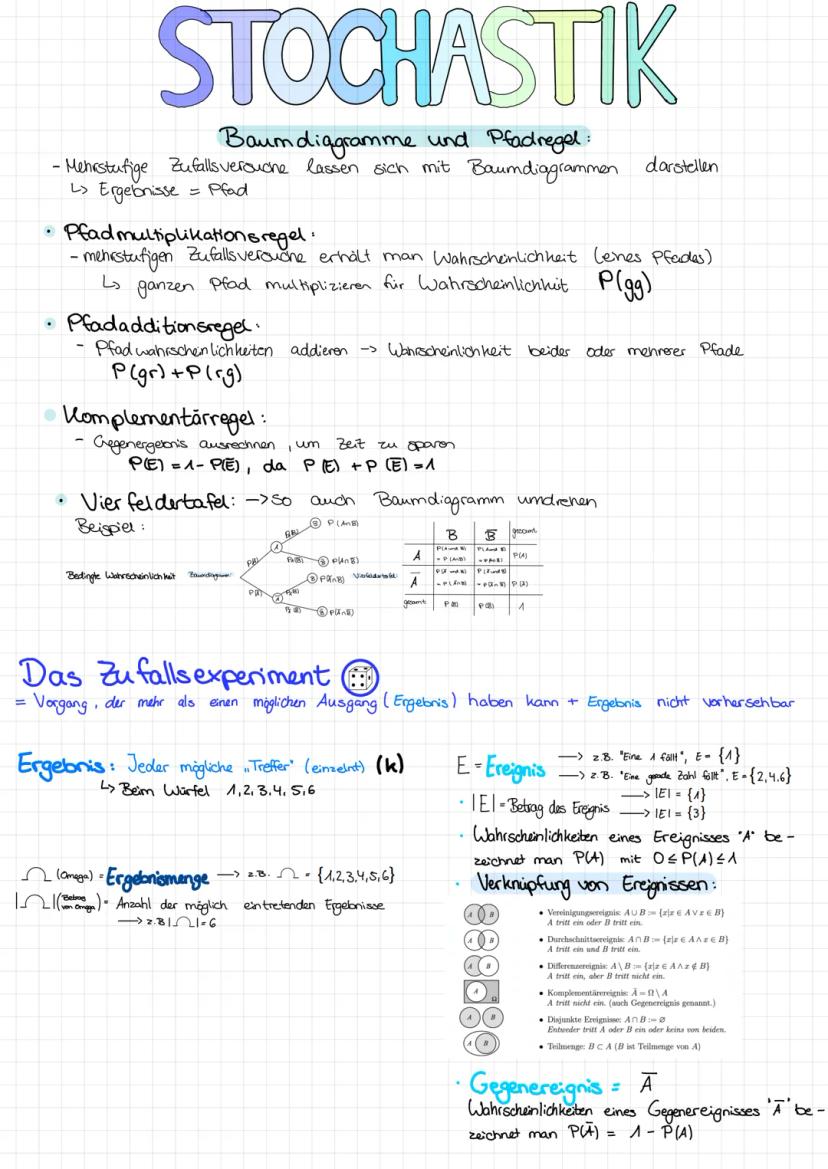 STOCHASTIK
Baumdiagramme und Pfadregel:
- Mehrstufige Zufallsversuche lassen sich mit Baumdiagrammen darstellen
↳ Ergebnisse = Pfad
• Pfadmultiplikationsregel:
- mehrstufigen Zufallsversuche erhält man Wahrscheinlichkeit (eines Pfades)
↳ ganzen Pfad multiplizieren für Wahrscheinlichkeit P(gg)
• Pfadadditionsregel:
- Pfadwahrscheinlichkeiten addieren -> Wahrscheinlichkeit beider oder mehrerer Pfade
P(gr) + P(r,g)
• Komplementärregel:
- Gegenergebnis ausrechnen, um Zeit zu sparen
P(E) = 1 - P(Ē), da P(E) + P(Ē) = 1
• Vierfeldertafel: -> so auch Baumdiagramm umdrehen
Beispiel:
Bedingte Wahrscheinlichkeit Baumdiagramm: Vierfeldertafel:
B B̄ gesamt
A P(A)
Ā P(Ā)
gesamt P(B) P(B̄) 1
Das Zufallsexperiment
= Vorgang, der mehr als einen möglichen Ausgang (Ergebnis) haben kann + Ergebnis nicht vorhersehbar
Ergebnis: Jeder mögliche „Treffer" (einzelnt) (k)
↳ Beim Würfel 1,2,3,4,5,6
Ω (Omega) = Ergebnismenge -> z.B. Ω = {1,2,3,4,5,6}
|Ω| (Betrag von Omega) = Anzahl der möglich eintretenden Ergebnisse
-> z.B |Ω| = 6
E = Ereignis -> z.B. "Eine 1 fällt", E = {1}
-> z.B. "Eine gerade Zahl fällt", E = {2,4,6}
• |E| = Betrag des Ereignis -> |E| = {1}
-> |E| = {3}
• Wahrscheinlichkeiten eines Ereignisses "A" be-
zeichnet man P(A) mit 0 ≤ P(A) ≤ 1
• Verknüpfung von Ereignissen:
• Vereinigungsereignis: A ∪ B := {x|x ∈ A ∨ x ∈ B}
A tritt ein oder B tritt ein.
• Durchschnittsereignis: A ∩ B := {x|x ∈ A ∧ x ∈ B}
A tritt ein und B tritt ein.
• Differenzereignis: A \ B := {x|x ∈ A ∧ x ∉ B}
A tritt ein, aber B tritt nicht ein.
• Komplementärereignis: Ā = Ω \ A
A tritt nicht ein. (auch Gegenereignis genannt.)
• Disjunkte Ereignisse: A ∩ B := ∅
Entweder tritt A oder B ein oder keins von beiden.
• Teilmenge: B ⊂ A (B ist Teilmenge von A)
• Gegenereignis = Ā
Wahrscheinlichkeiten eines Gegenereignisses "Ā" be-
zeichnet man P(Ā) = 1 - P(A)